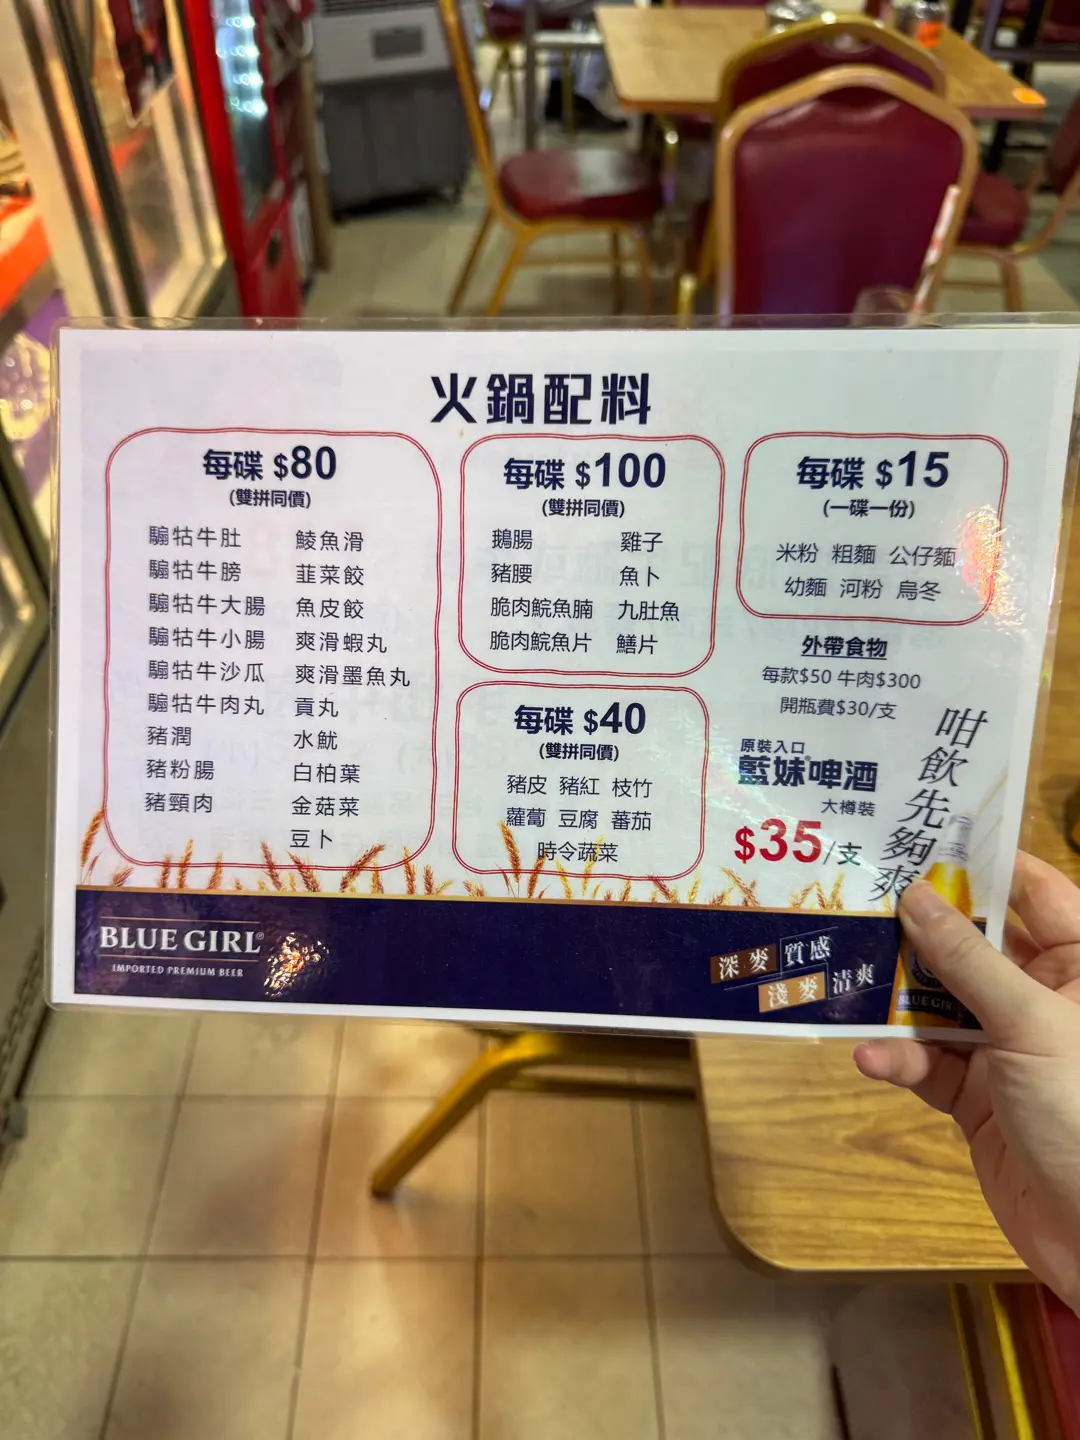 火鍋配料
每碟 $80
(雙拼同價)
騸牯牛肚
騸牯牛膀
騸牯牛大腸
騸牯牛小腸
騸牯牛沙瓜
騸牯牛肉丸
豬潤
豬粉腸
豬頸肉
鯪魚滑
韮菜餃
魚皮餃
爽滑蝦丸
爽滑墨魚丸
貢丸
水魷
白柏葉
金菇菜
豆卜
每碟 $100
(雙拼同價)
鵝腸
豬腰
脆肉鯇魚腩
脆肉鯇魚片
雞子
魚卜
九肚魚
鱔片
每碟 $40
(雙拼同價)
豬皮 豬紅 枝竹
蘿蔔 豆腐 蕃茄
時令蔬菜
每碟 $15
(一碟一份)
米粉 粗麵 公仔麵
幼麵 河粉 烏冬
外帶食物
每款$50 牛肉$300
開瓶費$30/支
原裝入口
藍妹®啤酒
大樽裝
$35/支
咁飲先夠爽
BLUE GIRL®
IMPORTED PREMIUM BEER
深麥 質感
淺麥 清爽
BLUE GIRL